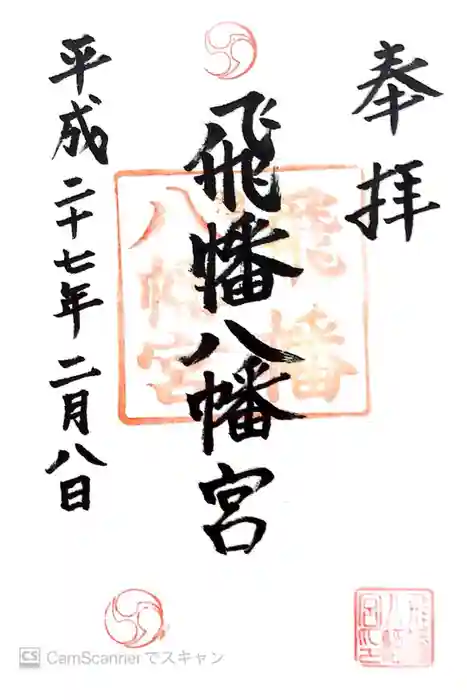 奉拝
飛幡八幡宮
平成二十七年二月八日
飛幡
八幡宮
CS CamScannerでスキャン